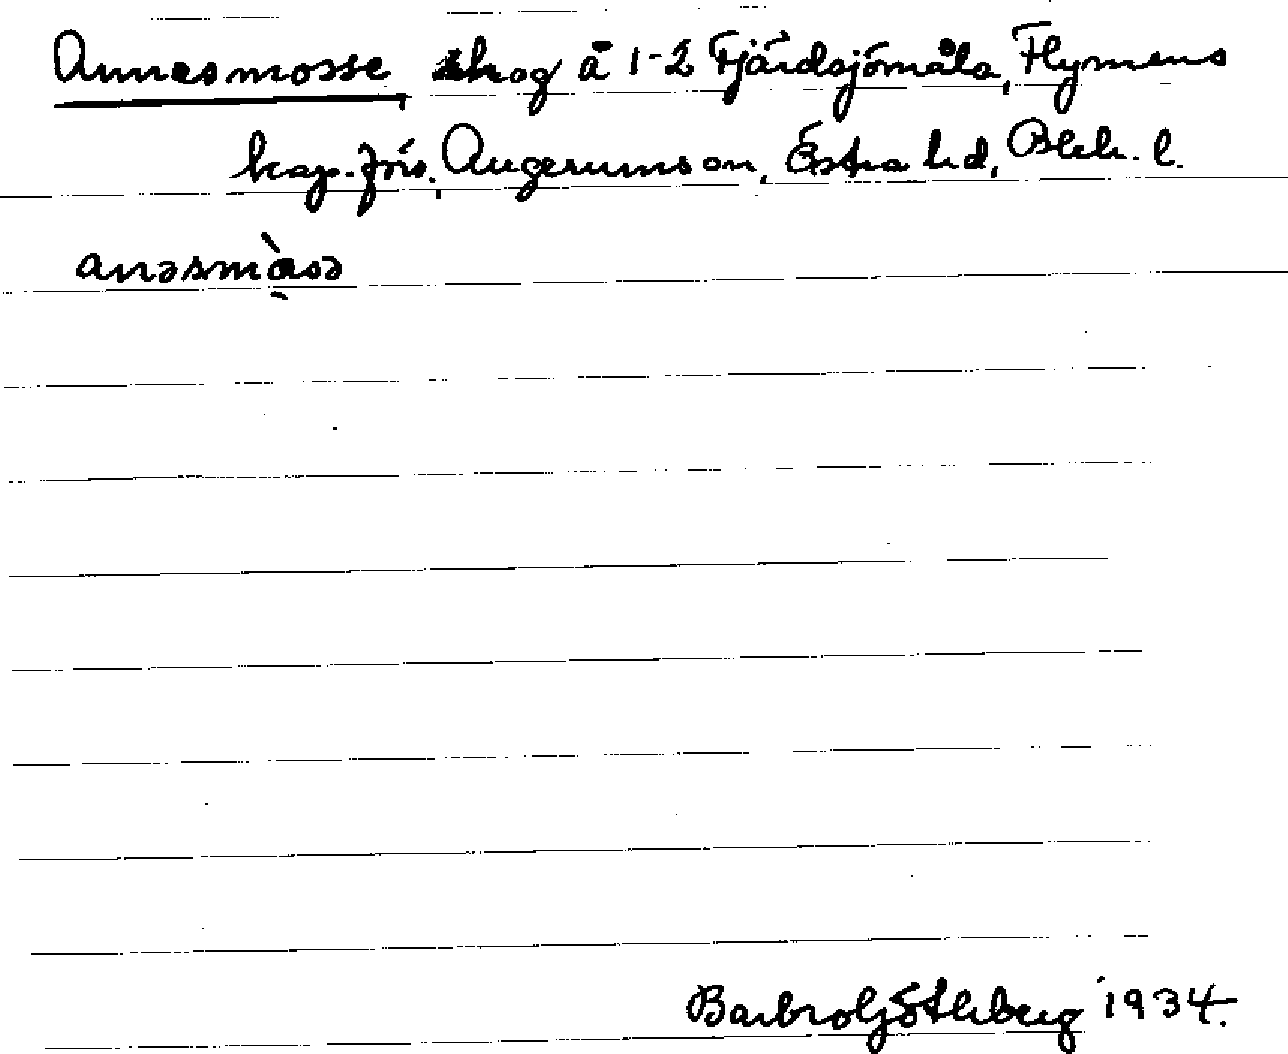 Annasmosse, skog å 1-2 Fjärdsjömåla, Flymens
kap.-förs., Augerums sn, Östra hd, Blek. l.
anəsmòsə
Barbro Götleberg 1934.